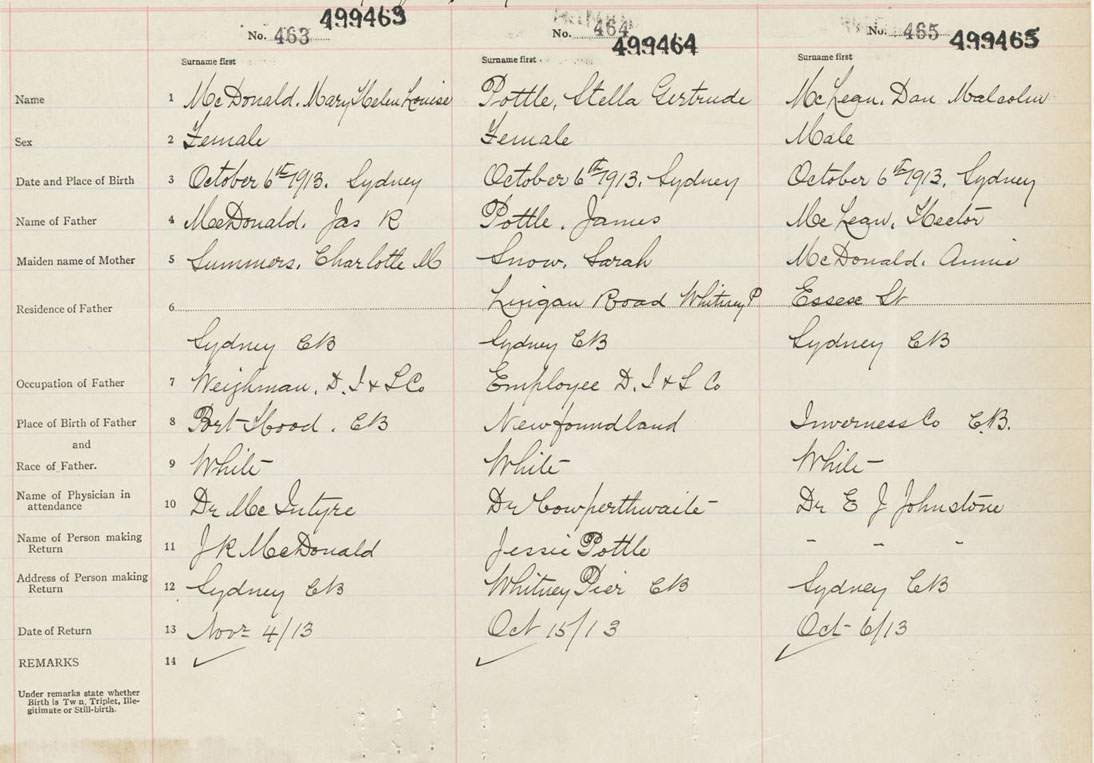 499463
No. 463
No. 464
499464
No. 465
499465
Surname first
Surname first
Surname first
Name 1 McDonald, Mary Helen Louise Pottle, Stella Gertrude McLean, Dan Malcolm
Sex 2 Female Female Male
Date and Place of Birth 3 October 6th 1913. Sydney October 6th 1913. Sydney October 6th 1913. Sydney
Name of Father 4 McDonald, Jas R Pottle, James McLean, Hector
Maiden name of Mother 5 Summers, Charlotte M Snow, Sarah McDonald, Annie
Residence of Father 6 Lingan Road Whitney P Essex St
Sydney CB Sydney CB Sydney CB
Occupation of Father 7 Weighman, D. I & S Co Employee D. I & S Co
Place of Birth of Father 8 Port Hood. CB Newfoundland Inverness Co C.B.
and
Race of Father. 9 White White White
Name of Physician in attendance 10 Dr McIntyre Dr Cowperthwaite Dr E J Johnstone
Name of Person making Return 11 J R McDonald Jessie Pottle - - -
Address of Person making Return 12 Sydney CB Whitney Pier CB Sydney CB
Date of Return 13 Novr 4/13 Oct 15/13 Oct 6/13
REMARKS 14
Under remarks state whether
Birth is Tw n, Triplet, Ille-
gitimate or Still-birth.